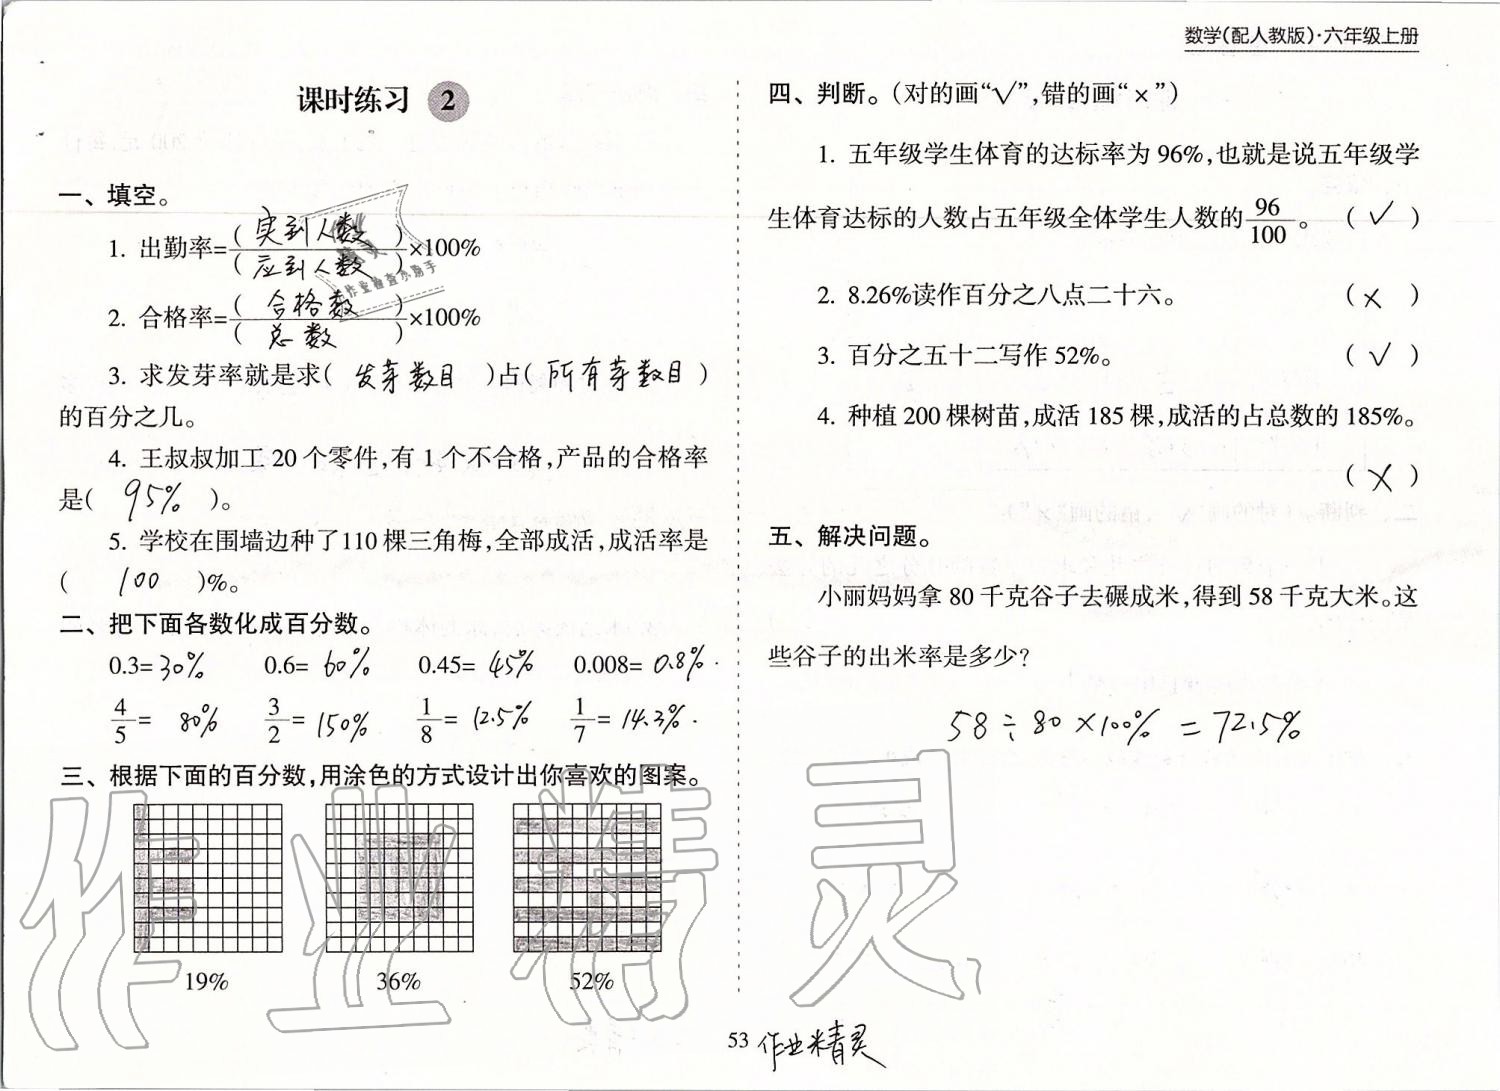 数学(配人教版)·六年级上册
课时练习 2
一、填空。
1. 出勤率=(实到人数)/(应到人数)×100%
2. 合格率=(合格数)/(总数)×100%
3. 求发芽率就是求( 发芽数目 )占( 所有芽数目 )
的百分之几。
4. 王叔叔加工 20 个零件,有 1 个不合格,产品的合格率
是( 95% )。
5. 学校在围墙边种了110 棵三角梅,全部成活,成活率是
( 100 )%。
二、把下面各数化成百分数。
0.3=30% 0.6=60% 0.45=45% 0.008=0.8%.
4/5=80% 3/2=150% 1/8=12.5% 1/7=14.3%.
三、根据下面的百分数,用涂色的方式设计出你喜欢的图案。
19% 36% 52%
四、判断。(对的画“√”,错的画“×”)
1. 五年级学生体育的达标率为 96%,也就是说五年级学
生体育达标的人数占五年级全体学生人数的96/100。 (√)
2. 8.26%读作百分之八点二十六。 (×)
3. 百分之五十二写作 52%。 (√)
4. 种植 200 棵树苗,成活 185 棵,成活的占总数的 185%。
(×)
五、解决问题。
小丽妈妈拿 80 千克谷子去碾成米,得到 58 千克大米。这
些谷子的出米率是多少?
58÷80×100%=72.5%
53 作业精灵
作业精灵